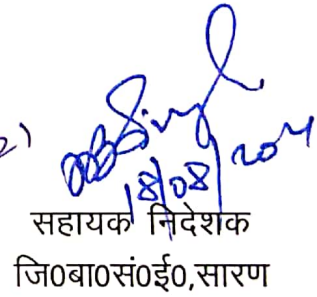 18/08/2021
सहायक निदेशक
जि0बा0सं0ई0,सारण